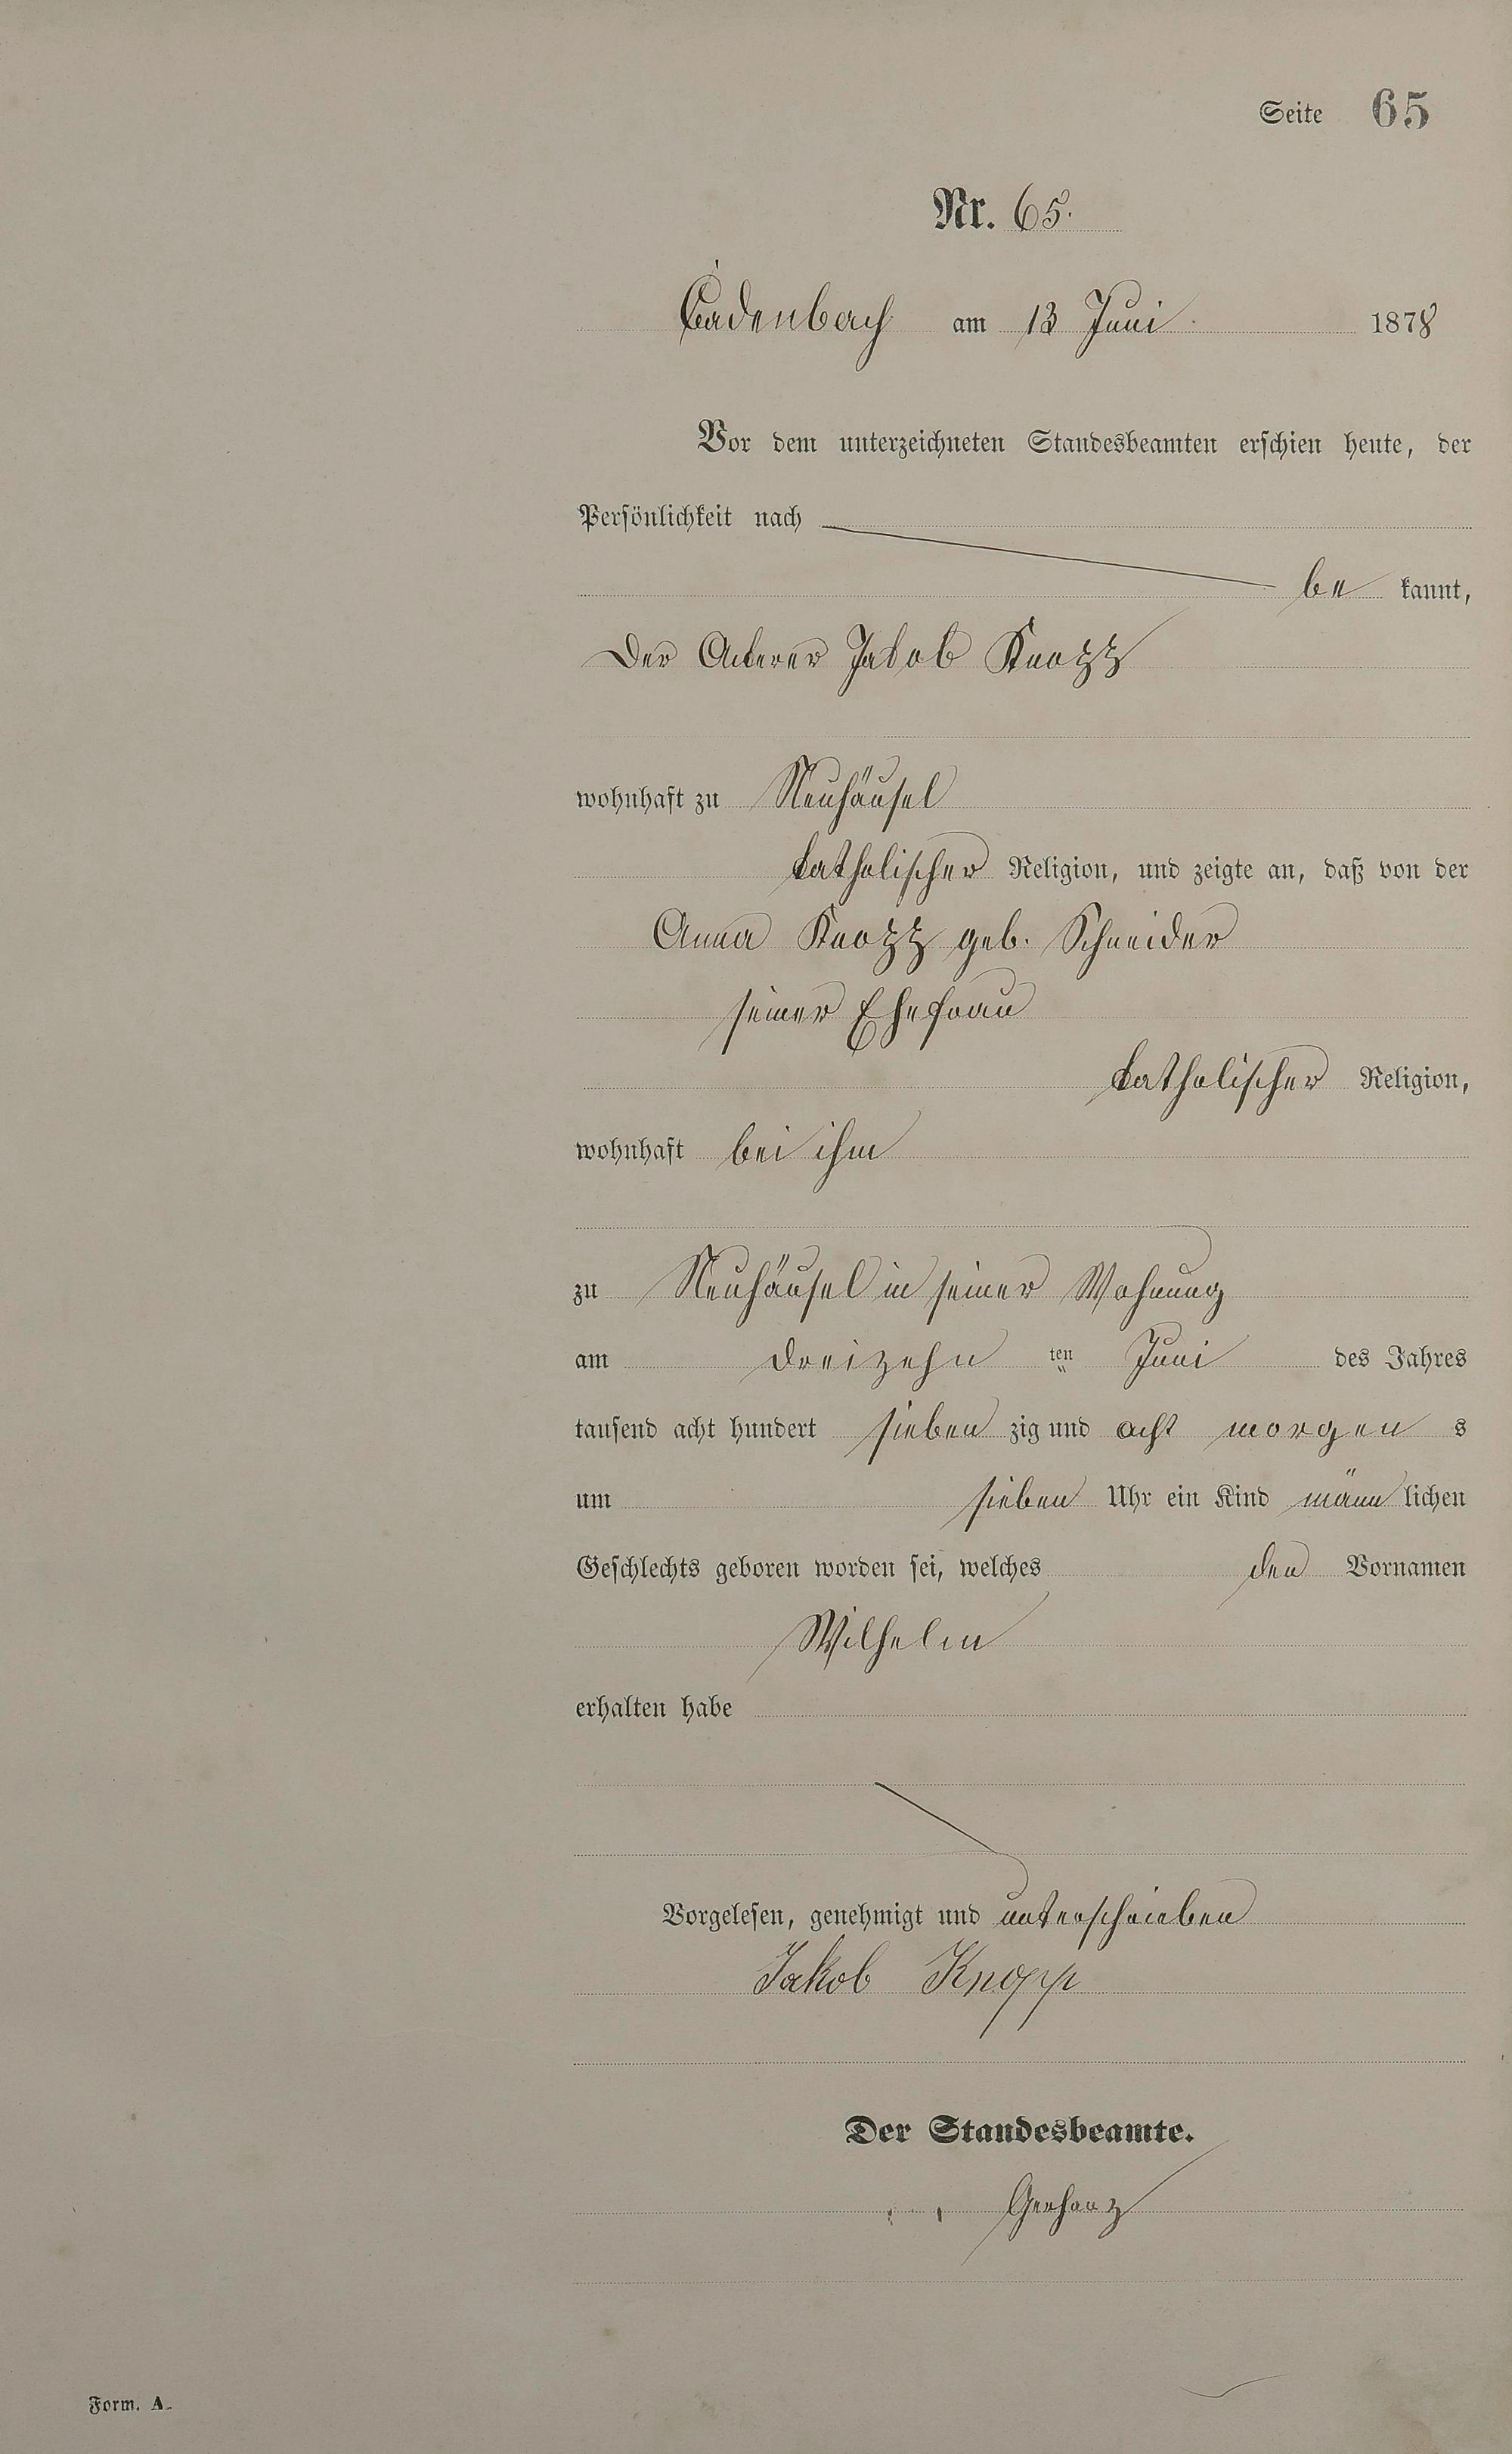 Seite 65
Nr. 65.
Cadenbach am 13 Juni 1878
Vor dem unterzeichneten Standesbeamten erschien heute, der
Persönlichkeit nach
be kannt,
der Ackerer Jakob Knopp
wohnhaft zu Neuhäusel
katholischer Religion, und zeigte an, daß von der
Anna Knopp geb. Schneider
seiner Ehefrau
katholischer Religion,
wohnhaft bei ihm
zu Neuhäusel in seiner Wohnung
am dreizehn ten Juni des Jahres
tausend acht hundert sieben zig und acht morgen s
um sieben Uhr ein Kind männ lichen
Geschlechts geboren worden sei, welches den Vornamen
Wilhelm
erhalten habe
Vorgelesen, genehmigt und unterschrieben
Jakob Knopp
Der Standesbeamte.
Gerhanz
Form. A.